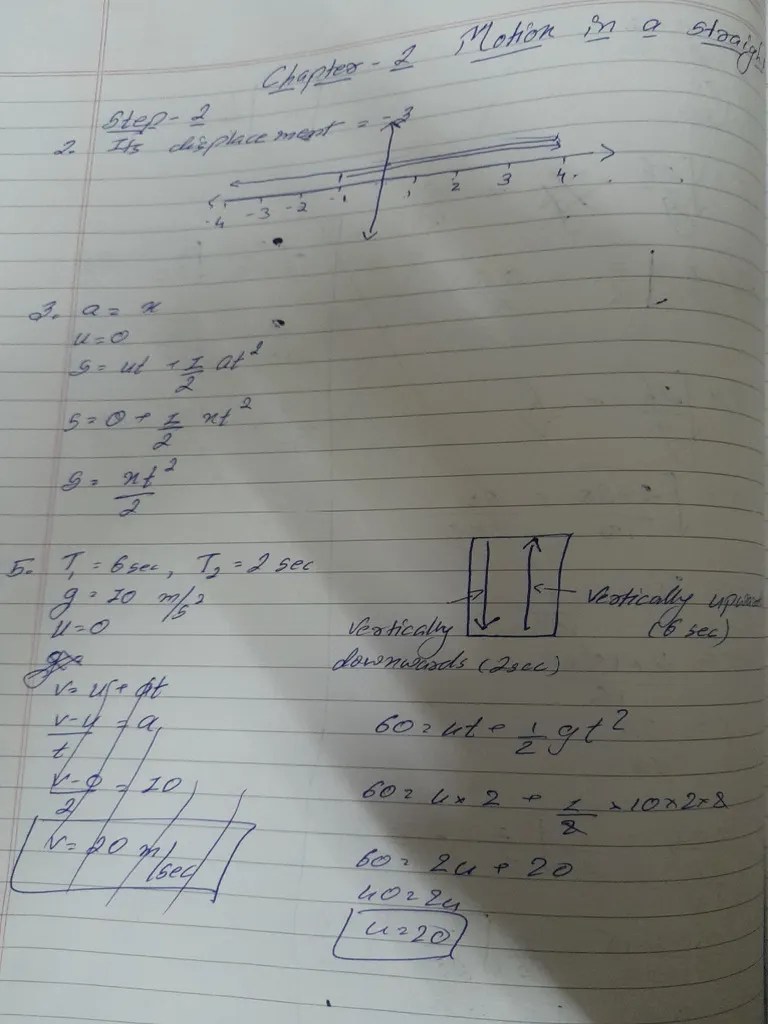 Chapter - 2 Motion in a straigh
Step - 2
2. Its displacement = -3
-4 -3 -2 -1 1 2 3 4
3. a = x
u = 0
s = ut + 1/2 at²
s = 0 + 1/2 xt²
s = xt²/2
5. T₁ = 6 sec, T₂ = 2 sec
g = 10 m/s²
u = 0
v = u + at
v-u/t = a
v-0/2 = 10
v = 20 m/sec
vertically downwards (2sec)
vertically upwar
(6 sec)
60 = ut + 1/2 gt²
60 = u × 2 + 1/2 × 10 × 2 × 2
60 = 2u + 20
40 = 2u
u = 20